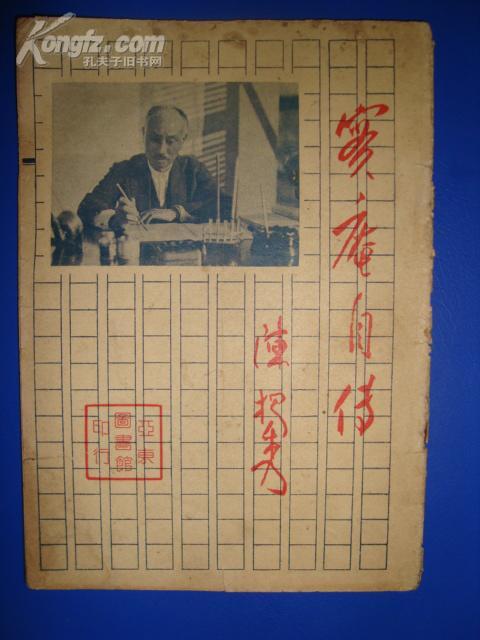 Kongfz.com
孔夫子旧书网
實庵自傳
陳獨秀
亞東
圖書館
印行